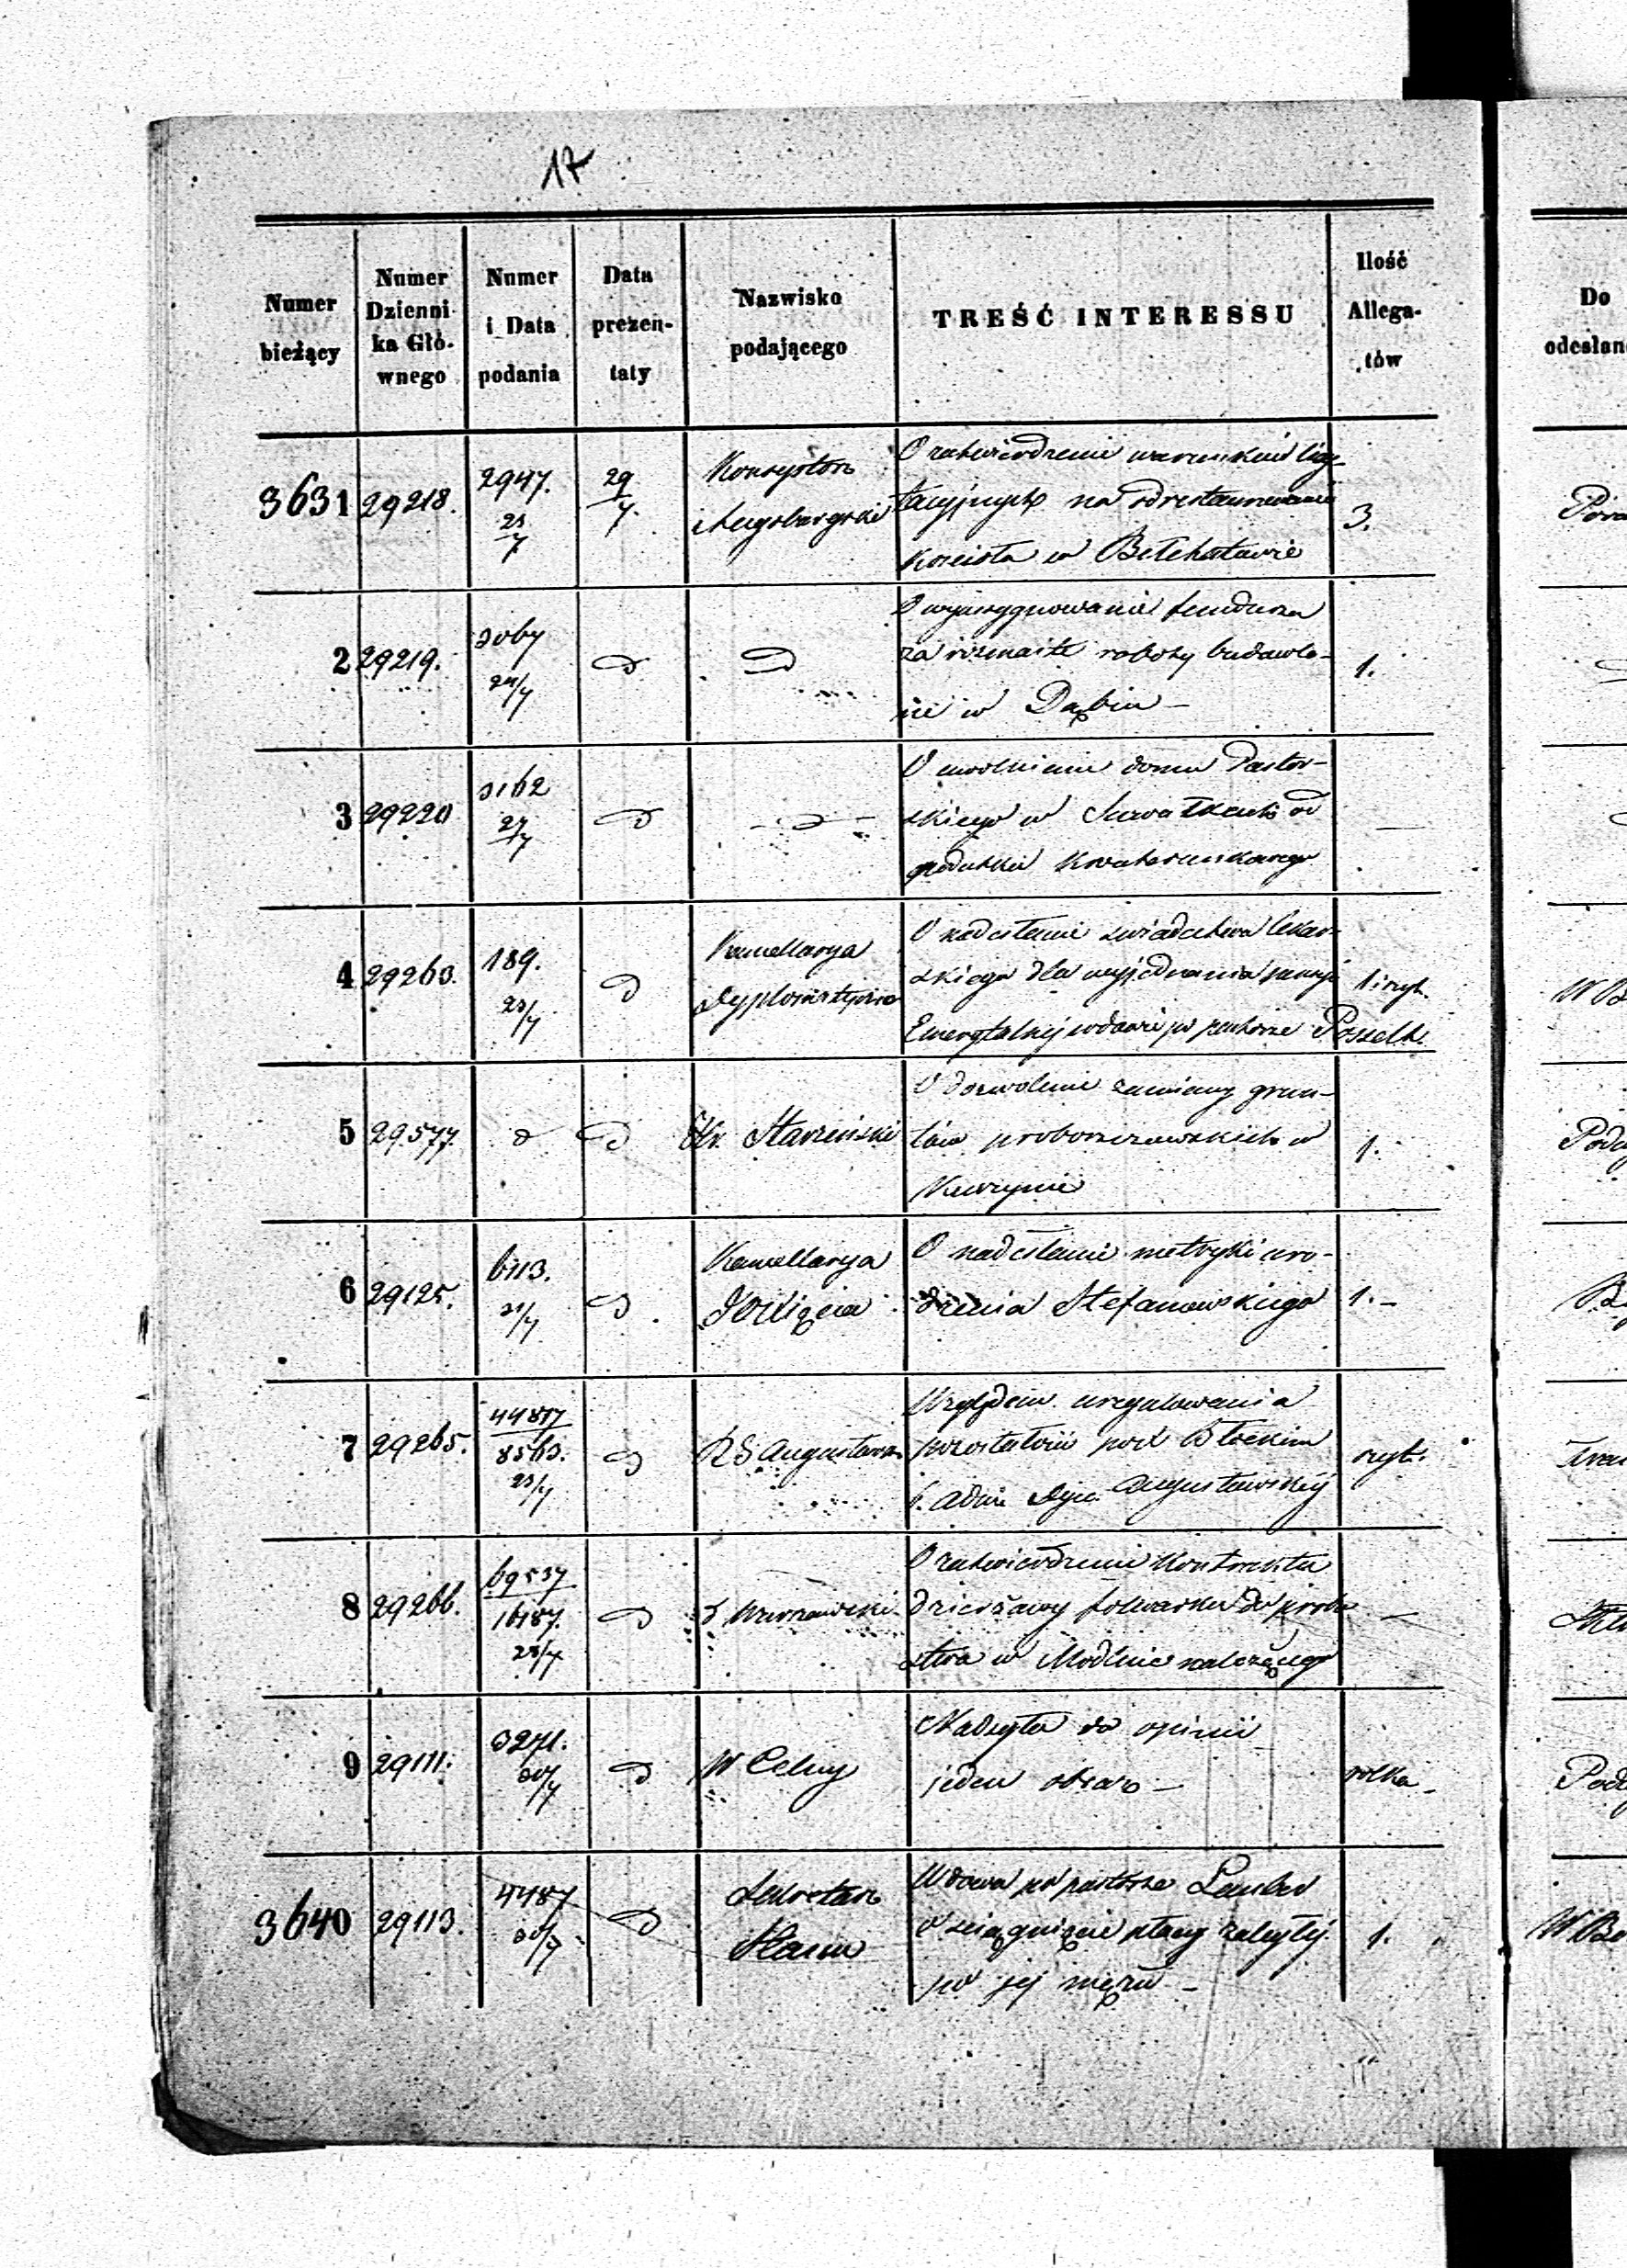 17
Numer bieżący
Numer Dzienni- ka Głó- wnego
Numer i Data podania
Data prezen- taty
Nazwisko podającego
TREŚĆ INTERESSU
Ilość Allega- tów
Do odesłan
3631 29218. 2947. 23/7 29/7. Konsystorz Augsburgski
O zatwierdzenie warunków licy-
tacyjnych na odrestaurowanie
kościoła w Bełchatowie
3.
2 29219. 3067 24/7 d d
O wyassygnowanie funduszu
za rozmaite roboty budowla-
ne w Dąbiu –
1.
3 29220 3162 27/7 d – d –
O uwolnienie domu Pastor-
skiego w Suwałkach od
podatku kwaterunkowego
–
4 29263. 189. 23/7 d Kancellarya Dyplomatyczna
O nadesłanie świadectwa lekar-
skiego dla wyjednania pensyi
Emerytalnej wdowie po pastorze Posselt.
1 i zszyt.
W B
5 29577. d d Hr. Starzeński
O dozwolenie zamiany grun-
tów proboszczowskich w
1.
6 29125. 6113. 21/7 d Kancellarya J. O. Xięcia
O nadesłanie metryki uro-
dzenia Stefanowskiego
1. –
7 29265. 44817 8563. 23/7 d R G Augustows.
Względem uregulowania
pozostałości pod
b. Adm. Dyec. Augustowskiej
zszyt.
8 29266. 69537 16187. 23/7 d d Warszawski
O zatwierdzenie Kontraktu
dzierżawy folwarku do probo
stwa w Modlnie należącego
–
9 29111. 3271. 30/7 d W Celny
Nadsyła do opinii
jeden obraz –
rolka –
3640 29113. 4487 30/7 d Sekretarz Stanu
Wdowa po pastorze Lauber
O ściągnięcie płacy zaległej
po jej mężu –
1.